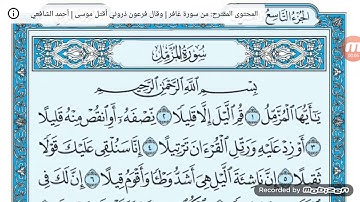 المحتوى المقترح: من سورة غافر | وقال فرعون ذروني أقتل موسى | أحمد الشافعي
الجزء التاسع
سورة المزمل
بِسْمِ ٱللَّهِ ٱلرَّحْمَٰنِ ٱلرَّحِيمِ
يَٰٓأَيُّهَا ٱلْمُزَّمِّلُ ١ قُمِ ٱلَّيْلَ إِلَّا قَلِيلًا ٢ نِّصْفَهُۥٓ أَوِ ٱنقُصْ مِنْهُ قَلِيلًا
٣ أَوْ زِدْ عَلَيْهِ وَرَتِّلِ ٱلْقُرْءَانَ تَرْتِيلًا ٤ إِنَّا سَنُلْقِى عَلَيْكَ قَوْلًا
ثَقِيلًا ٥ إِنَّ نَاشِئَةَ ٱلَّيْلِ هِىَ أَشَدُّ وَطْـًٔا وَأَقْوَمُ قِيلًا ٦ إِنَّ لَكَ فِى
Recorded by